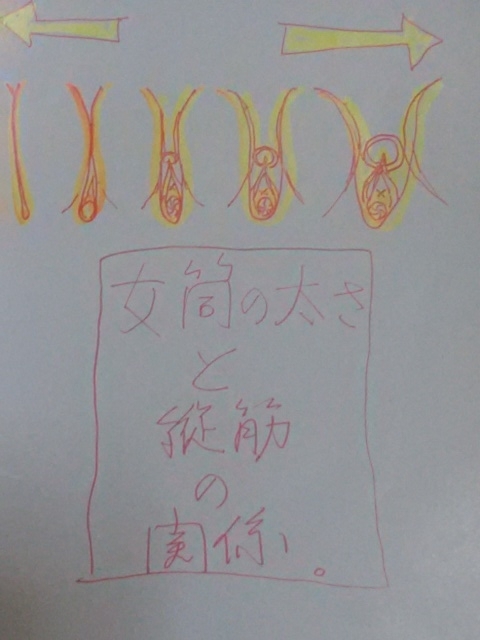 女筒の太さ
と
縦筋
の
関係。